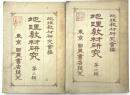 地理教材研究會編
地理教材研究
第一輯
東京 目黒書店發兌
地理教材研究會編
地理教材研究
第二輯
東京 目黒書店發兌